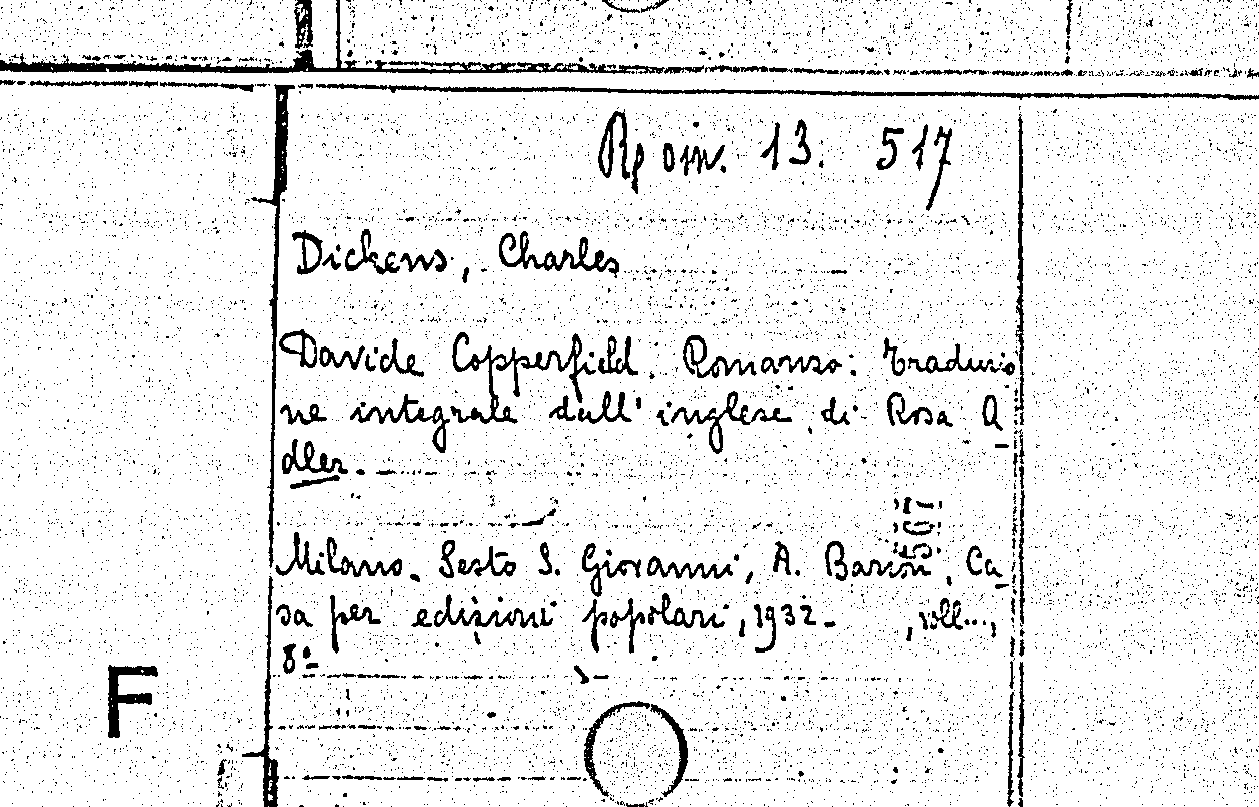 Rp om. 13. 517
Dickens, Charles
Davide Copperfield. Romanzo: Traduzio
ne integrale dall' inglese di Rosa A
dler.
Milano. Sesto S. Giovanni, A. Barion, Ca
sa per edizioni popolari, 1932- , voll...,
8º
F